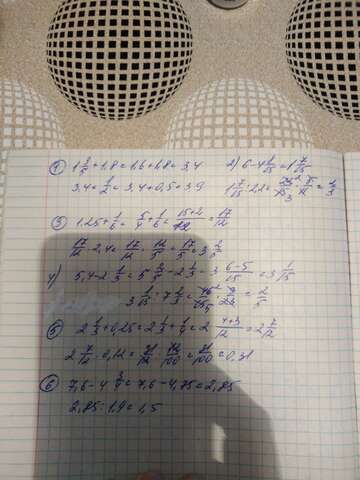 ① 1 3/5 + 1,8 = 1,6 + 1,8 = 3,4 2) 6 - 4 8/15 = 1 7/15
3,4 + 1/2 = 3,4 + 0,5 = 3,9 1 7/15 : 2,2 = = 2/3
③ 1,25 + 1/6 = 5/4 + 1/6 = 15+2/12 = 17/12
17/12 · 2,4 = 17/12 · 12/5 = 17/5 = 3 2/5
4) 5,4 - 2 1/3 = 5 2/5 - 2 1/3 = 3 6-5/15 = 3 1/15
3 1/15 : 7 2/3 = = 2/5
⑤ 2 1/3 + 0,25 = 2 1/3 + 1/4 = 2 4+3/12 = 2 7/12
2 7/12 · 0,12 = 31/12 · 12/100 = 31/100 = 0,31
⑥ 7,6 - 4 3/4 = 7,6 - 4,75 = 2,85
2,85 : 1,9 = 1,5